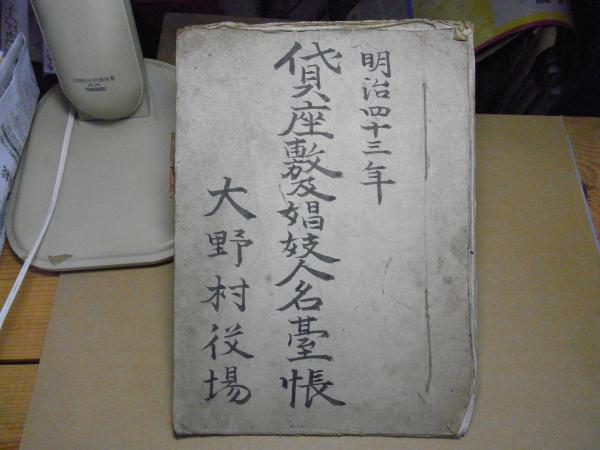 明治四十三年
貸座敷及娼妓人名臺帳
大野村役場
TWINBIRD